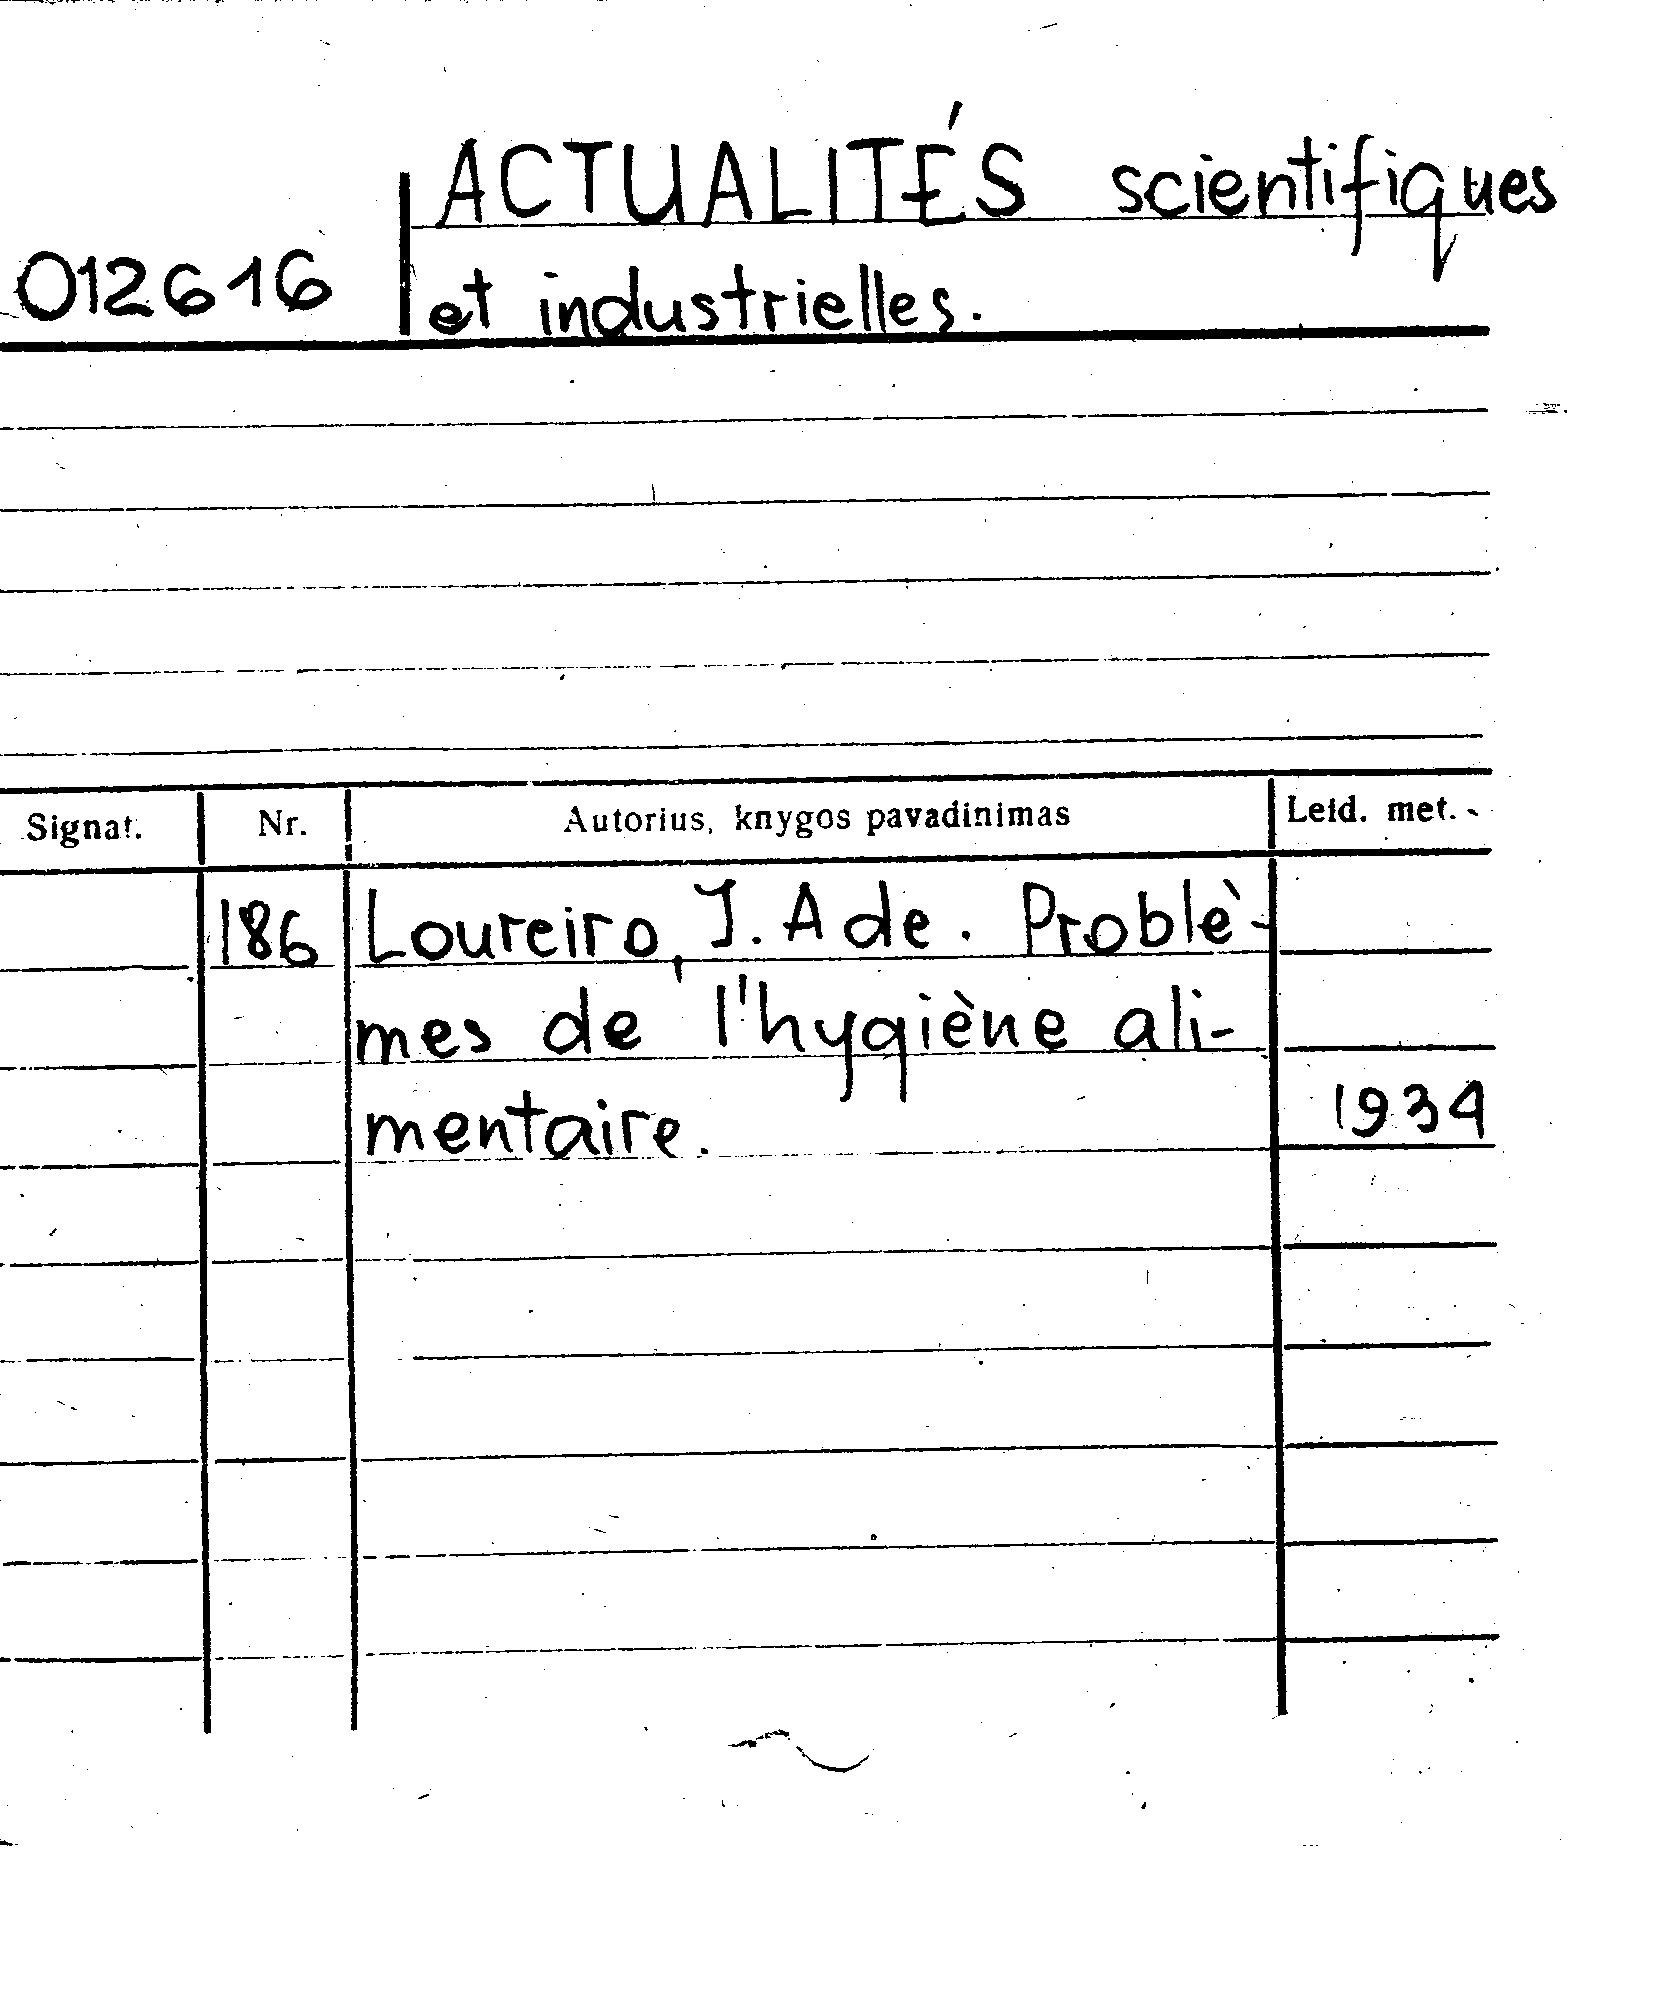 ACTUALITÉS scientifiques
012616 et industrielles.
Signat. Nr. Autorius, knygos pavadinimas Leid. met.
186 Loureiro, J. A de. Problè-
mes de l'hygiène ali-
mentaire. 1934